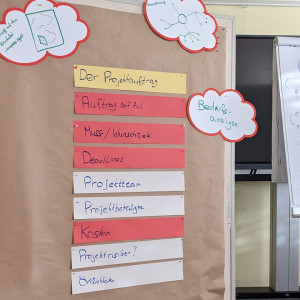 Der Projektauftrag
Auftrag mit Ziel
Muss-/Wunschziele
Deadlines
Bedarfs-
analyse
Projektteam
Projektbeteiligte
Kosten
Projektrisiken?
Örtlichkeiten